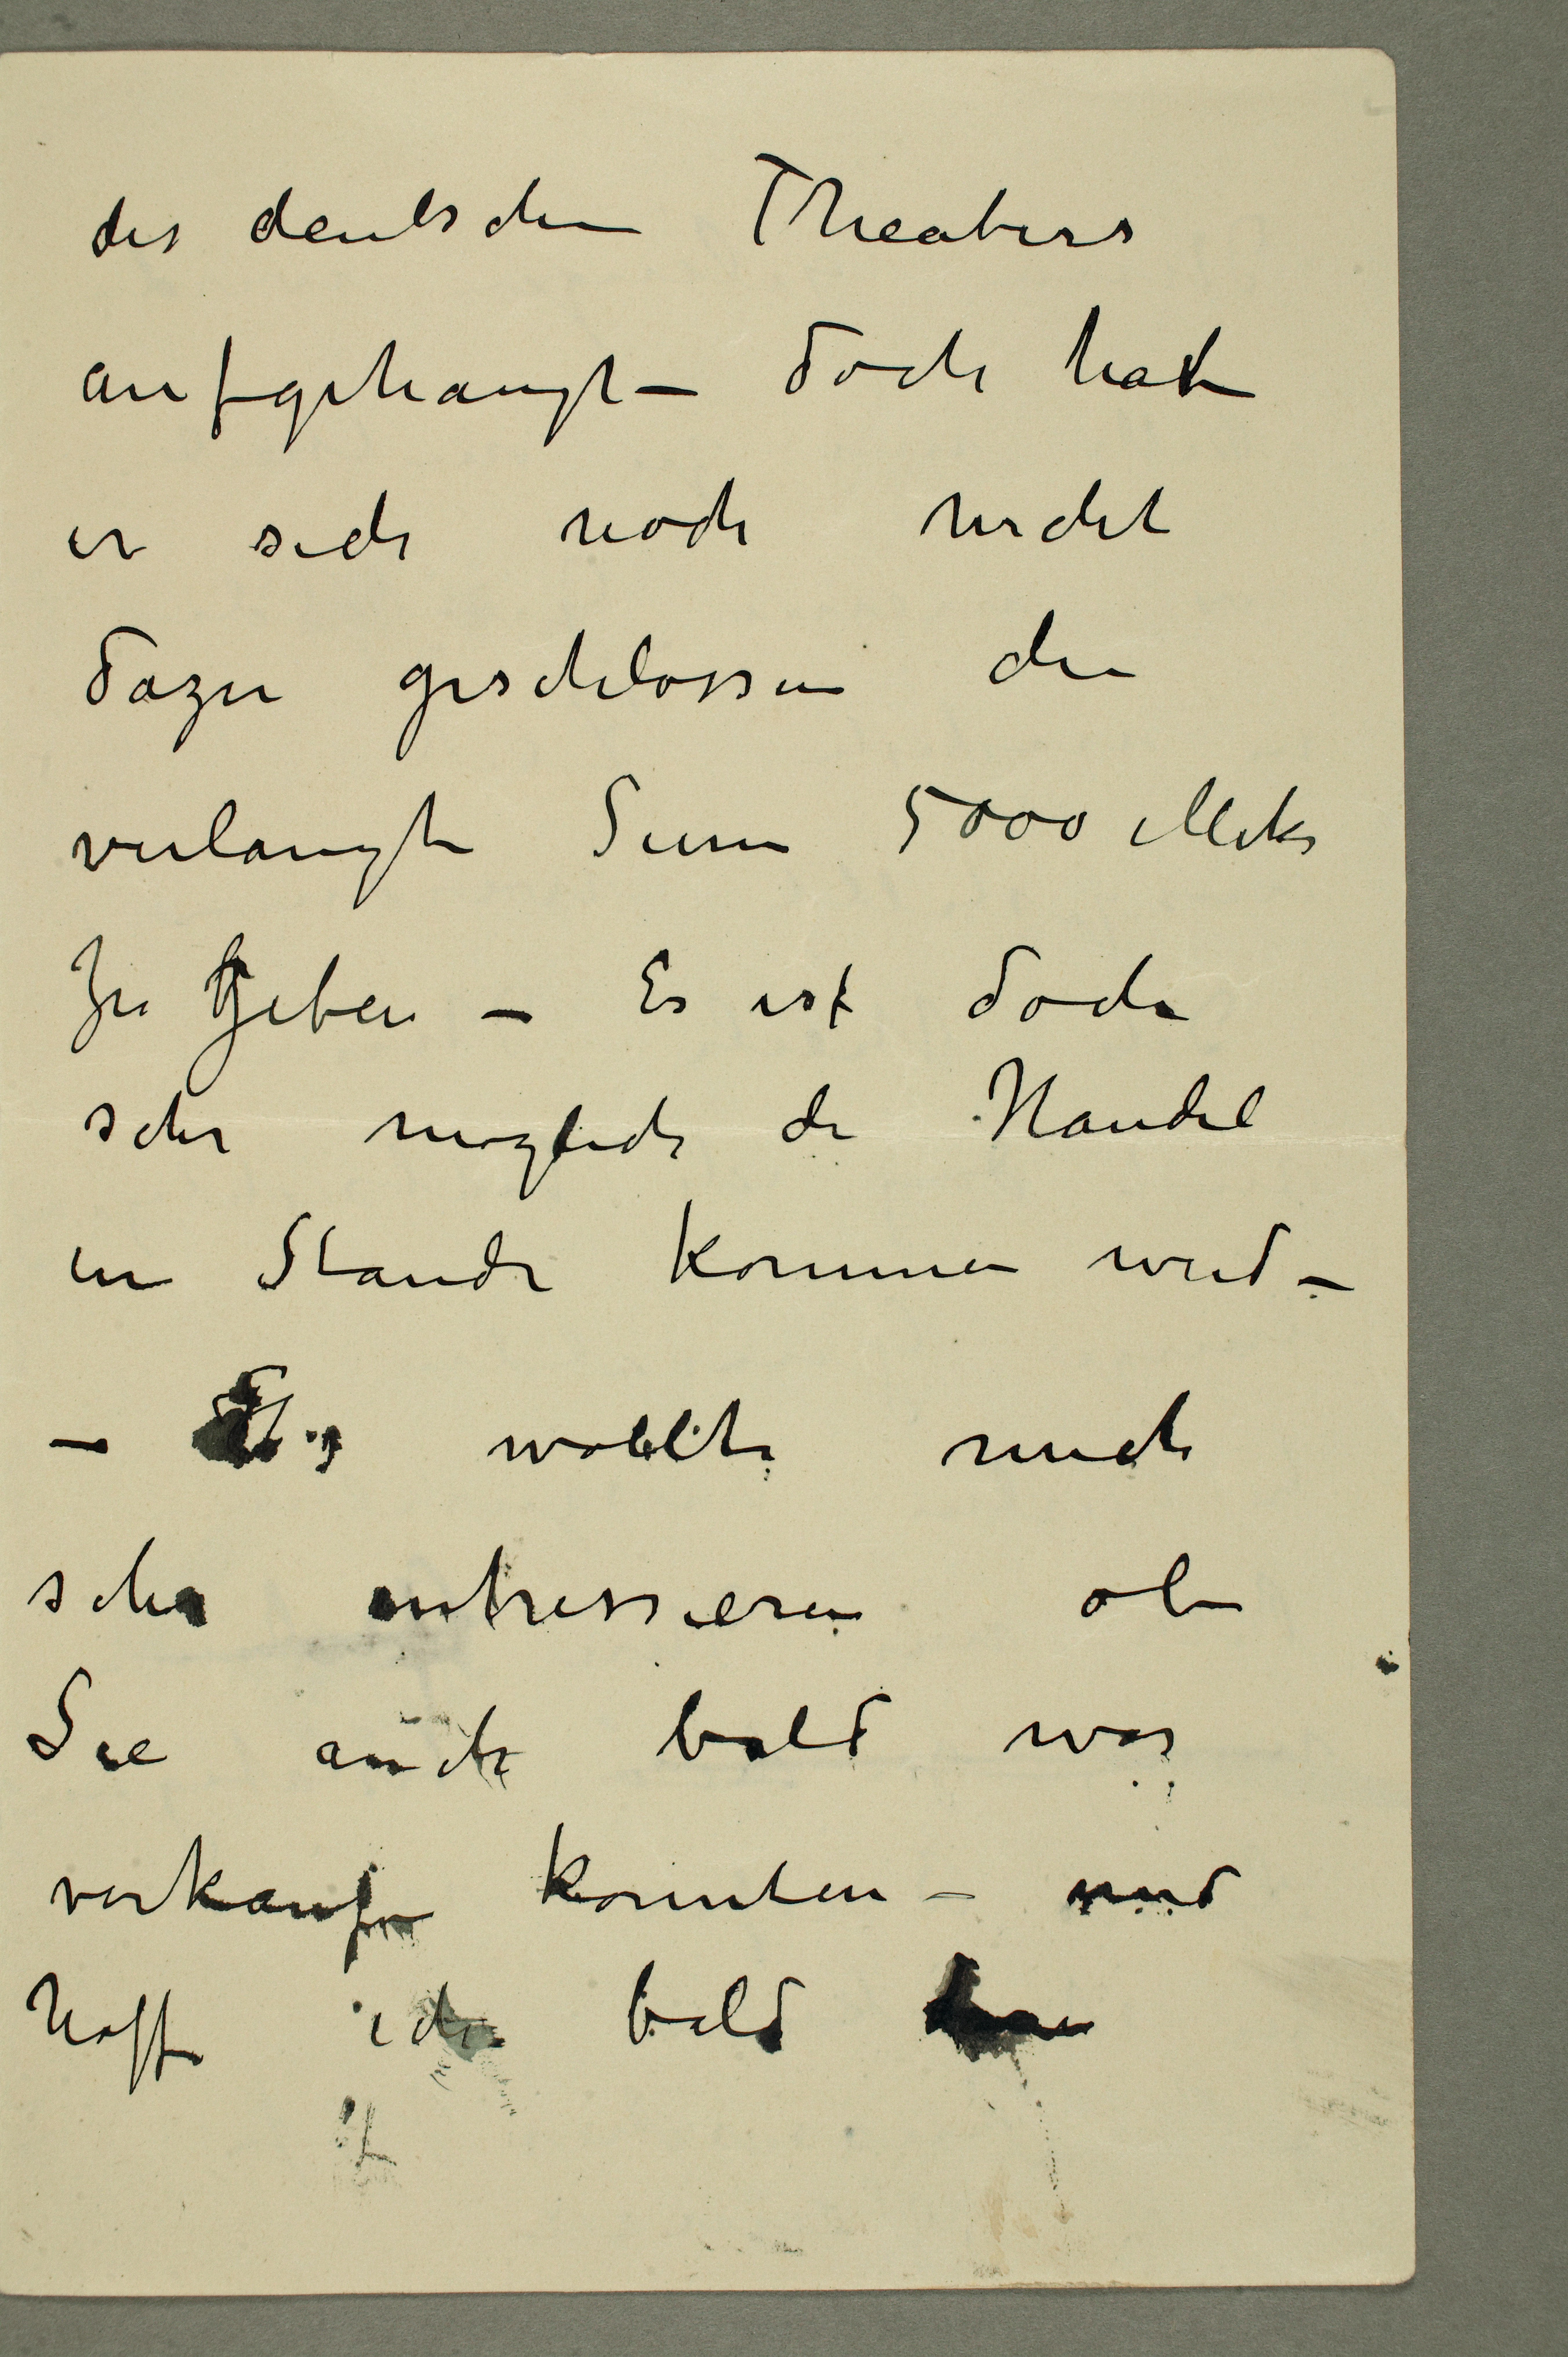 des deutschen Theaters
aufgehangt – doch hat
er sich noch nicht
dazu geschlossen die
verlangte Sum 5000 Mks
zu geben – Es ist doch
sehr moglich der Handel
in Stande kommen wird –
– Es wollte mich
sehr intressieren ob
Sie auch bald was
verkaufen konnten – und
hoffe ich bald